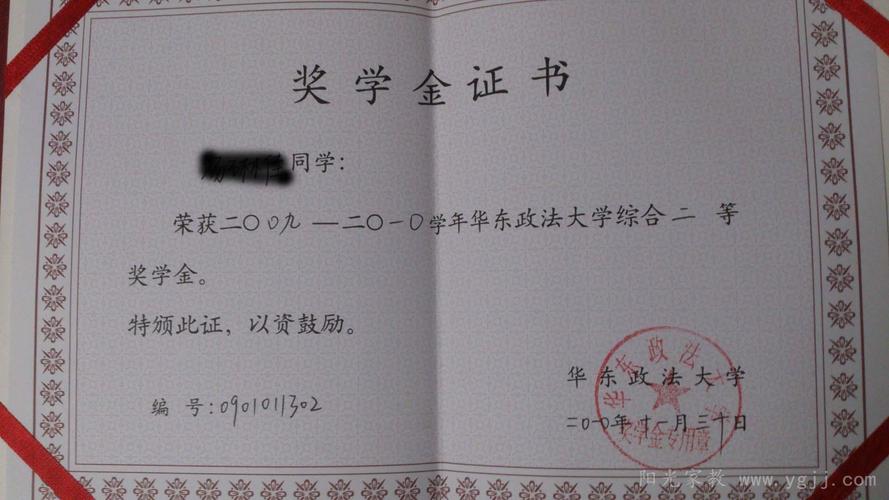 奖学金证书
同学：
荣获二〇〇九—二〇一〇学年华东政法大学综合二 等
奖学金。
特颁此证，以资鼓励。
华东政法大学
编 号：0901011302
二〇一〇年十一月三十日
华东政法大学
奖学金专用章
阳光家教 www.ygjj.com